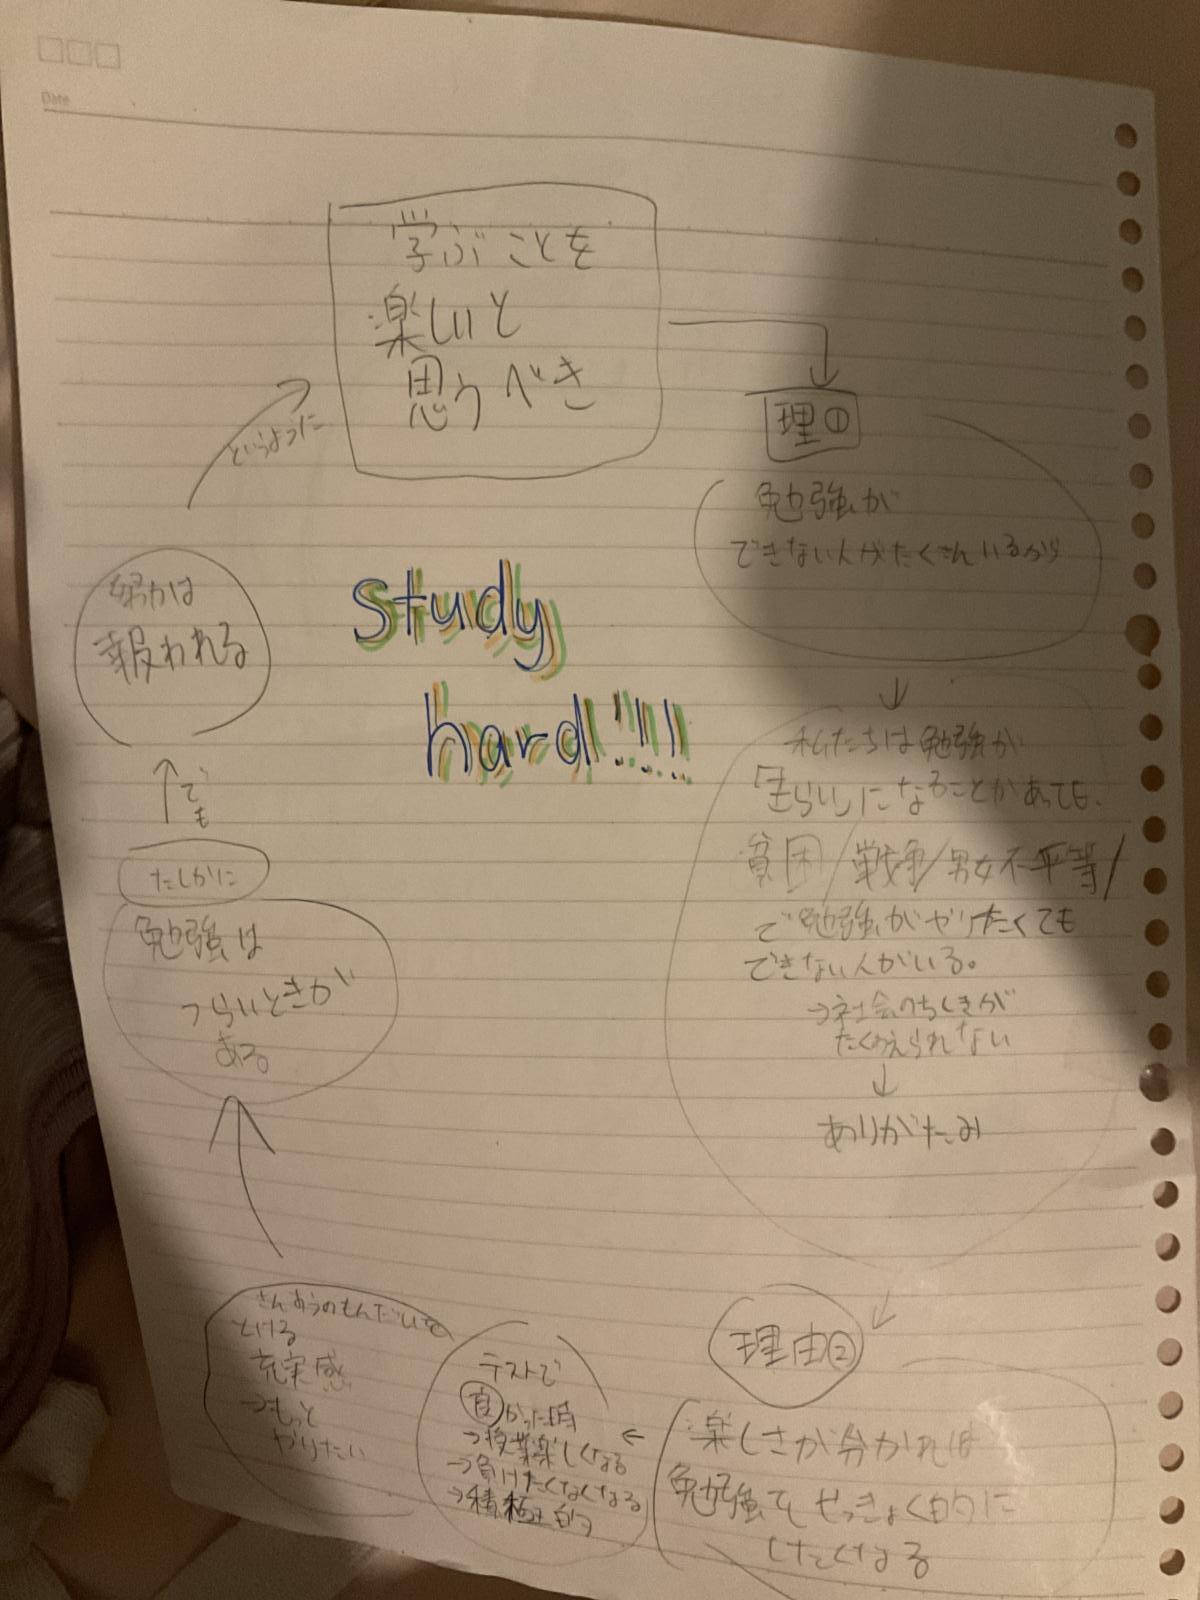 Date
学ぶことを
楽しいと
思うべき
理①
勉強が
できない人がたくさんいるから
私たちは勉強が
「きらい」になることがあっても、
貧困/戦争/男女不平等/
で勉強がやりたくても
できない人がいる。
→社会のちしきが
たくわえられない
↓
ありがたみ
理由②
楽しさが分かれば
勉強もせっきょく的に
したくなる
テストで
良かった時
→授業楽しくなる
→負けたくなくなる
→積極的
さんすうのもんだいを
とける
充実感
→もっと
やりたい
たしかに
勉強は
つらいときが
ある
でも
努力は
報われる
というように
study
hard!!!!